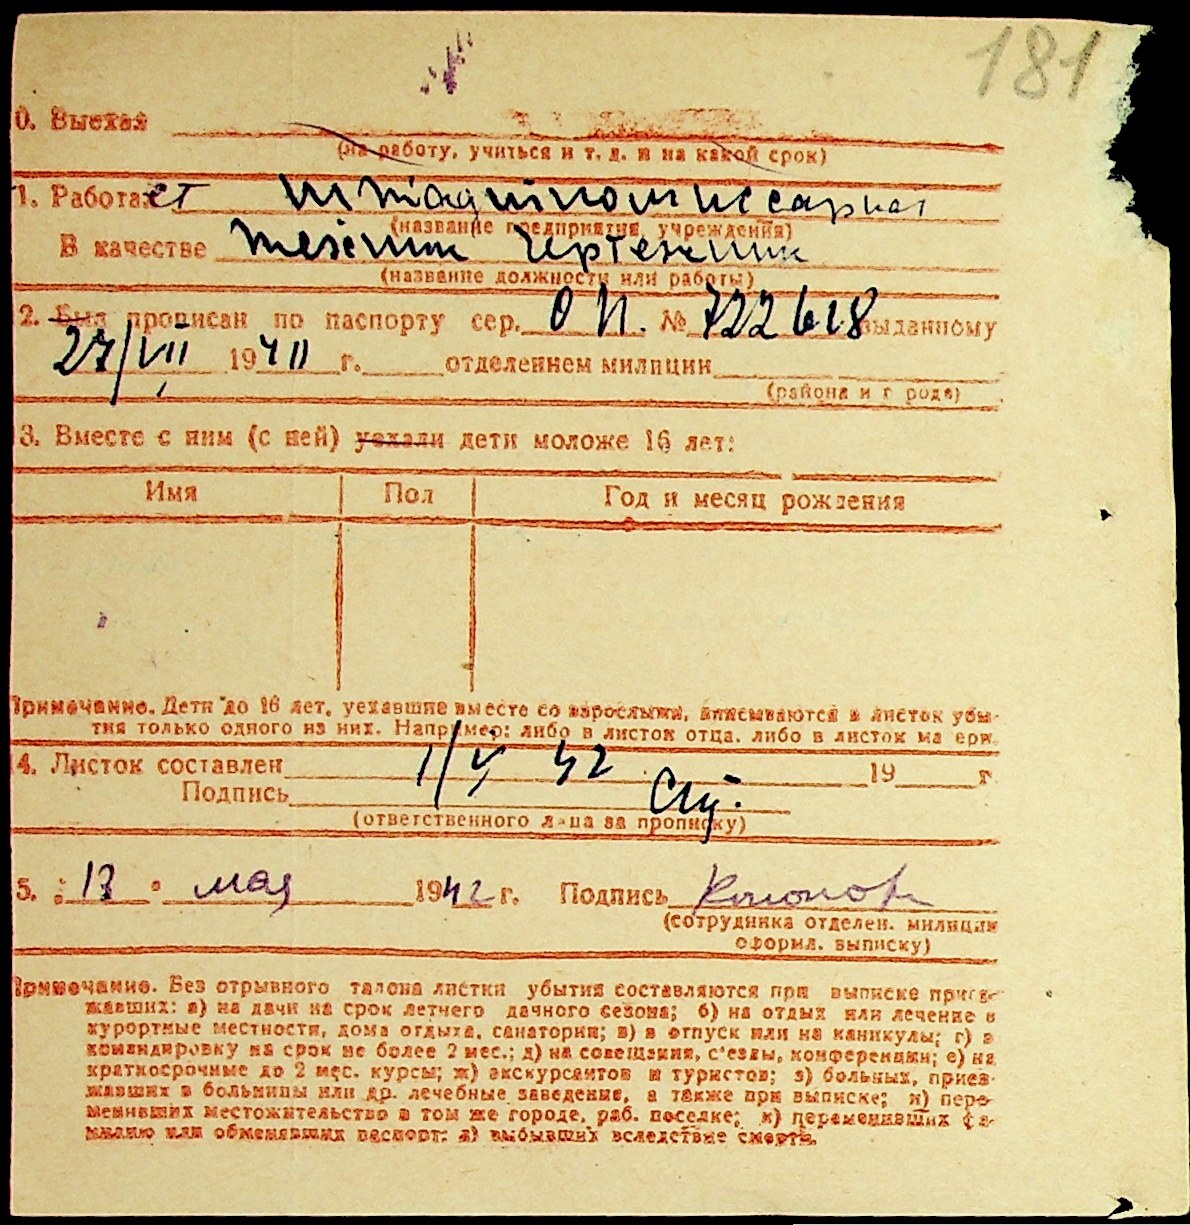 181
0. Выехал
(на работу, учиться и т. д. и на какой срок)
1. Работает
(название предприятия, учреждения)
В качестве техник чертежник
(название должности или работы)
2. Был прописан по паспорту сер. О П. № 722618 выданному
27/VII 1940 г. отделением милиции
(района и г рода)
3. Вместе с ним (с ней) уехали дети моложе 16 лет:
Имя Пол Год и месяц рождения
Примечание. Дети до 16 лет, уехавшие вместе со взрослыми, вписываются в листок убы-
тия только одного из них. Например: либо в листок отца, либо в листок ма ери.
4. Листок составлен 1/V 42 19 г.
Подпись
(ответственного лица за прописку)
5. 13 мая 1942 г. Подпись
(сотрудника отделен. милиции
оформл. выписку)
Примечание. Без отрывного талона листки убытия составляются при выписке приез-
жавших: а) на дачи на срок летнего дачного сезона; б) на отдых или лечение в
курортные местности, дома отдыха, санатории; в) в отпуск или на каникулы; г) в
командировку на срок не более 2 мес.; д) на совещания, с'езды, конференции; е) на
краткосрочные до 2 мес. курсы; ж) экскурсантов и туристов; з) больных, приез-
жавших в больницы или др. лечебные заведение, а также при выписке; и) пере-
менивших местожительство в том же городе, раб. поселке; к) переменивших фа-
милию или обменявших паспорт; л) выбывших вследствие смерти.